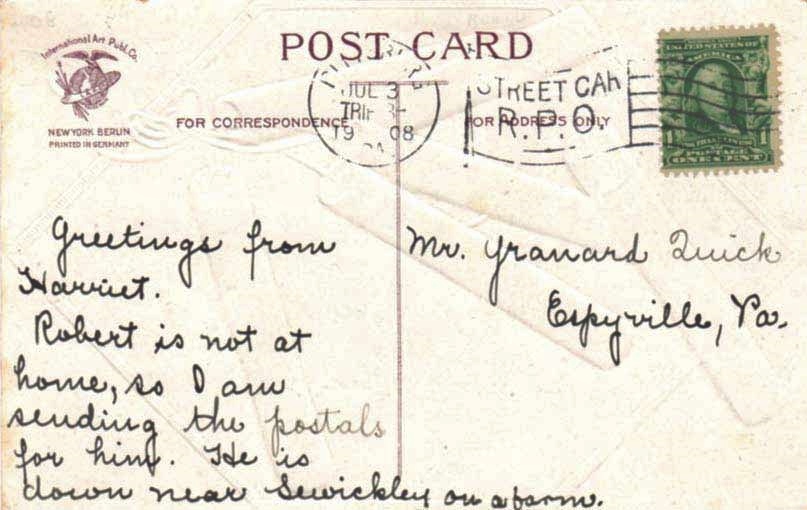 International Art Publ. Co.
NEW YORK BERLIN
PRINTED IN GERMANY
POST CARD
FOR CORRESPONDENCE
FOR ADDRESS ONLY
JUL 3
TRIP 3-
1908
PA
STREET CAR
R.P.O.
UNITED STATES OF AMERICA
FRANKLIN
1 1
ONE CENT
Greetings from
Harriet.
Robert is not at
home, so I am
sending the postals
for him. He is
down near Sewickley on a farm.
Mr. Granard Quick
Espyville, Pa.